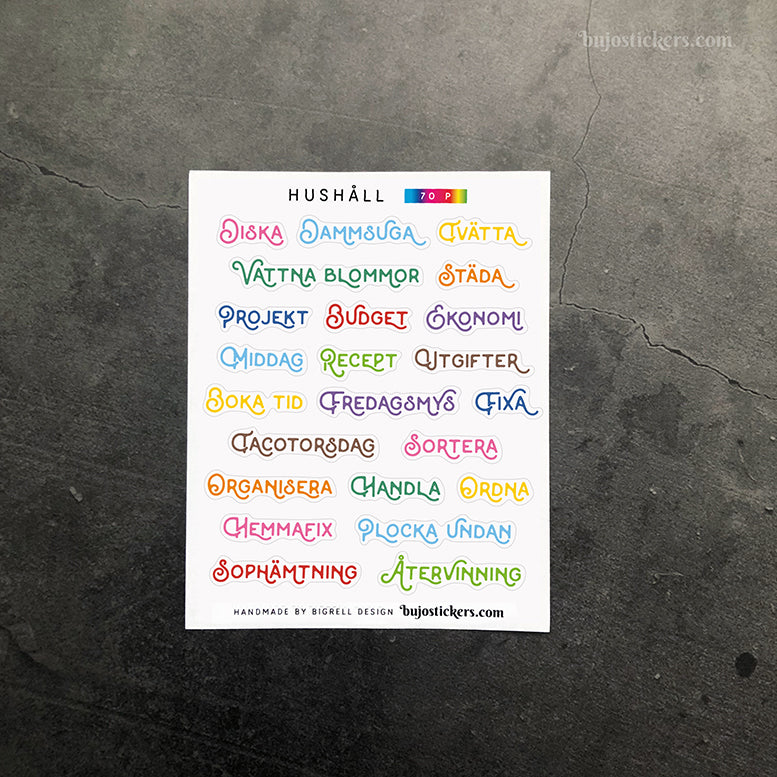 bujostickers.com
HUSHÅLL 70 P
DISKA DAMMSUGA TVÄTTA
VATTNA BLOMMOR STÄDA
PROJEKT BUDGET EKONOMI
MIDDAG RECEPT UTGIFTER
BOKA TID FREDAGSMYS FIXA
TACOTORSDAG SORTERA
ORGANISERA HANDLA ORDNA
HEMMAFIX PLOCKA UNDAN
SOPHÄMTNING ÅTERVINNING
HANDMADE BY BIGRELL DESIGN bujostickers.com